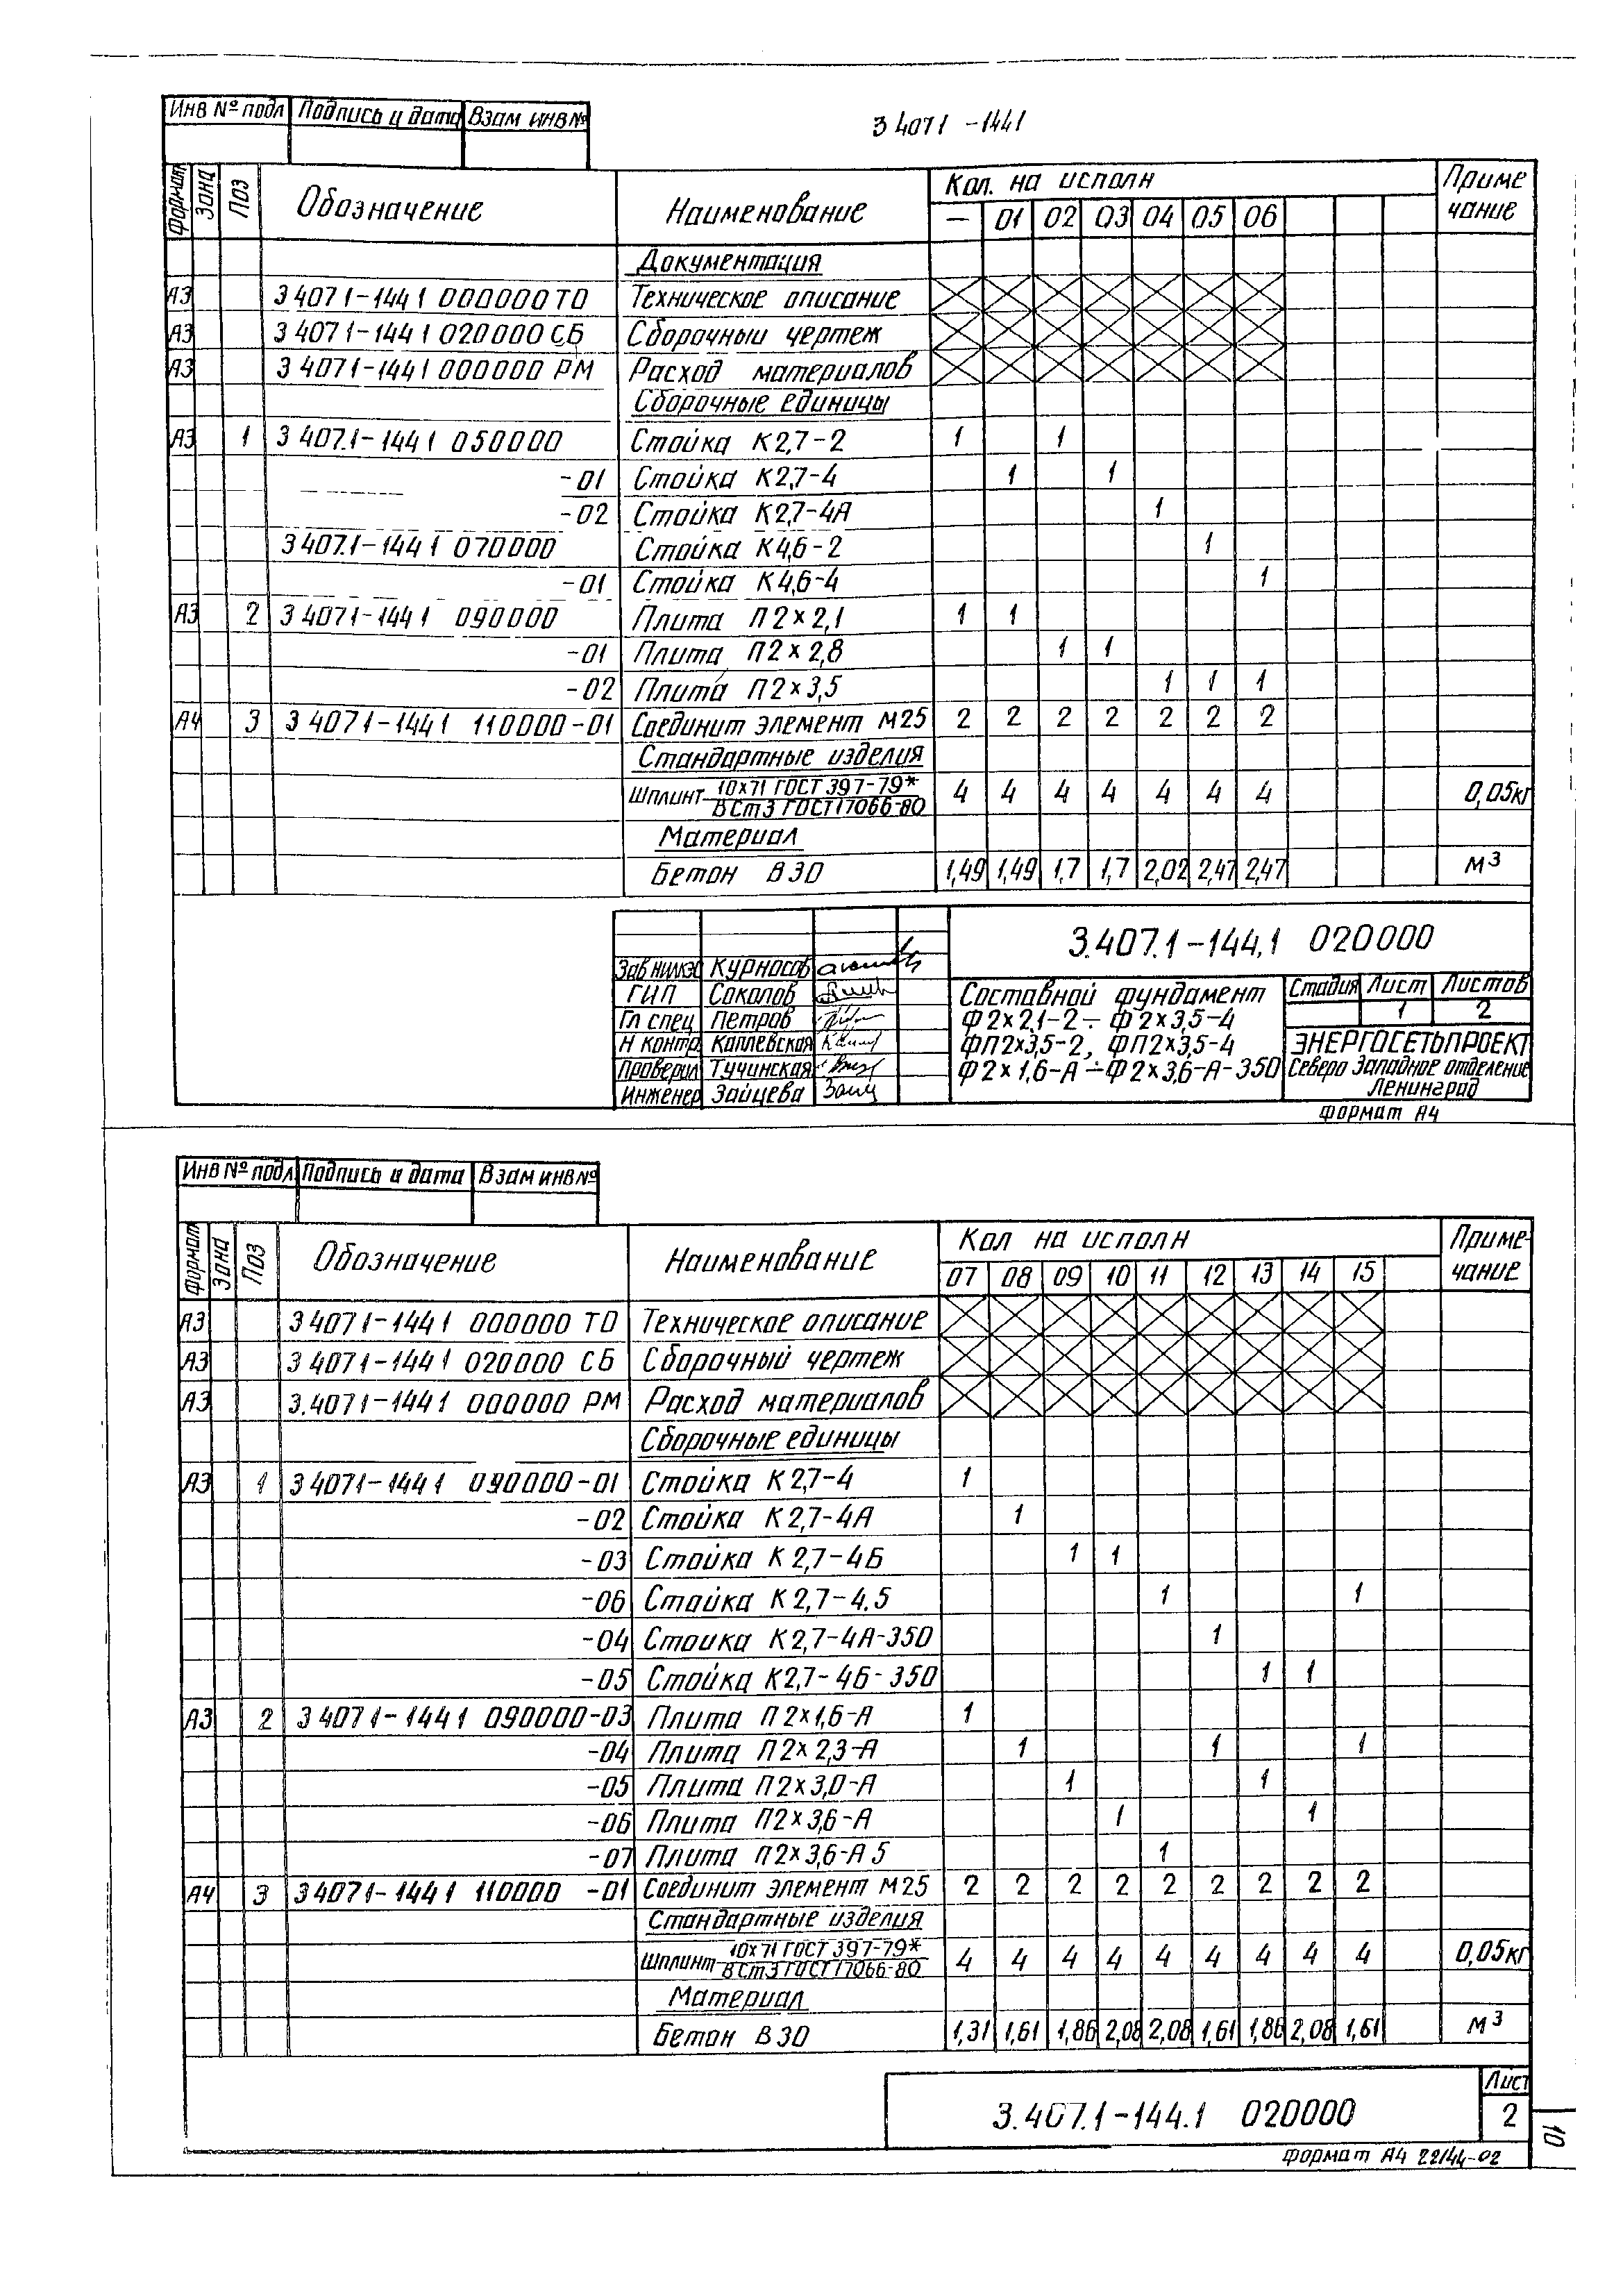 Инв № подл Подпись и дата Взам инв №
3 4071 -1441
Формат Зона Поз Обозначение Наименование Кол. на исполн Приме чание
— 01 02 03 04 05 06
Документация
А3 3 4071-1441 000000 ТО Техническое описание
А3 3 4071-1441 020000 СБ Сборочный чертеж
А3 3 4071-1441 000000 РМ Расход материалов
Сборочные единицы
А3 1 3 407.1-1441 050000 Стойка К2,7-2 1 1
-01 Стойка К2,7-4 1 1
-02 Стойка К2,7-4А 1
3 407.1-1441 070000 Стойка К4,6-2 1
-01 Стойка К4,6-4 1
А3 2 3 4071-1441 090000 Плита П2×2,1 1 1
-01 Плита П2×2,8 1 1
-02 Плита П2×3,5 1 1 1
А4 3 3 4071-1441 110000-01 Соединит элемент М25 2 2 2 2 2 2 2
Стандартные изделия
Шплинт 10×71 ГОСТ 397-79* 4 4 4 4 4 4 4 0,05кг
ВСт3 ГОСТ17066-80
Материал
Бетон В30 1,49 1,49 1,7 1,7 2,02 2,47 2,47 м3
3.407.1-144.1 020000
Зав НИЛКЭС Курносов
ГИП Соколов
Гл спец Петров
Н контр Каплевская
Проверил Тучинская
Инженер Зайцева
Составной фундамент
Ф2×2,1-2 ÷ Ф2×3,5-4
ФП2×3,5-2, ФП2×3,5-4
Ф2×1,6-А ÷ Ф2×3,6-А-350
Стадия Лист Листов
1 2
ЭНЕРГОСЕТЬПРОЕКТ
Северо Западное отделение
Ленинград
Формат А4
Инв № подл Подпись и дата Взам инв №
Формат Зона Поз Обозначение Наименование Кол на исполн Приме- чание
07 08 09 10 11 12 13 14 15
А3 3 4071-1441 000000 ТО Техническое описание
А3 3 4071-1441 020000 СБ Сборочный чертеж
А3 3.4071-1441 000000 РМ Расход материалов
Сборочные единицы
А3 1 3 4071-1441 090000-01 Стойка К2,7-4 1
-02 Стойка К2,7-4А 1
-03 Стойка К2,7-4Б 1 1
-06 Стойка К2,7-4.5 1 1
-04 Стойка К2,7-4А-350 1
-05 Стойка К2,7-4Б-350 1 1
А3 2 3 4071-1441 090000-03 Плита П2×1,6-А 1
-04 Плита П2×2,3-А 1 1 1
-05 Плита П2×3,0-А 1 1
-06 Плита П2×3,6-А 1 1
-07 Плита П2×3,6-А 5 1
А4 3 3 4071-1441 110000 -01 Соединит элемент М25 2 2 2 2 2 2 2 2 2
Стандартные изделия
Шплинт 10×71 ГОСТ 397-79* 4 4 4 4 4 4 4 4 4 0,05кг
ВСт3 ГОСТ17066-80
Материал
Бетон В30 1,31 1,61 1,86 2,08 2,08 1,61 1,86 2,08 1,61 м3
3.407.1-144.1 020000
Лист
2
10
Формат А4 22144-02